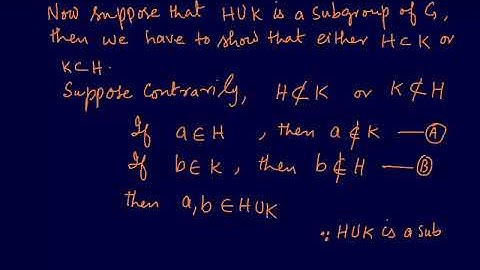 Now suppose that HUK is a subgroup of G,
then we have to show that either H⊂K or
K⊂H.
Suppose Contrarily, H⊄K or K⊄H
If a∈H , then a∉K —Ⓐ
If b∈K, then b∉H —Ⓑ
then a,b∈HUK
∵ HUK is a sub